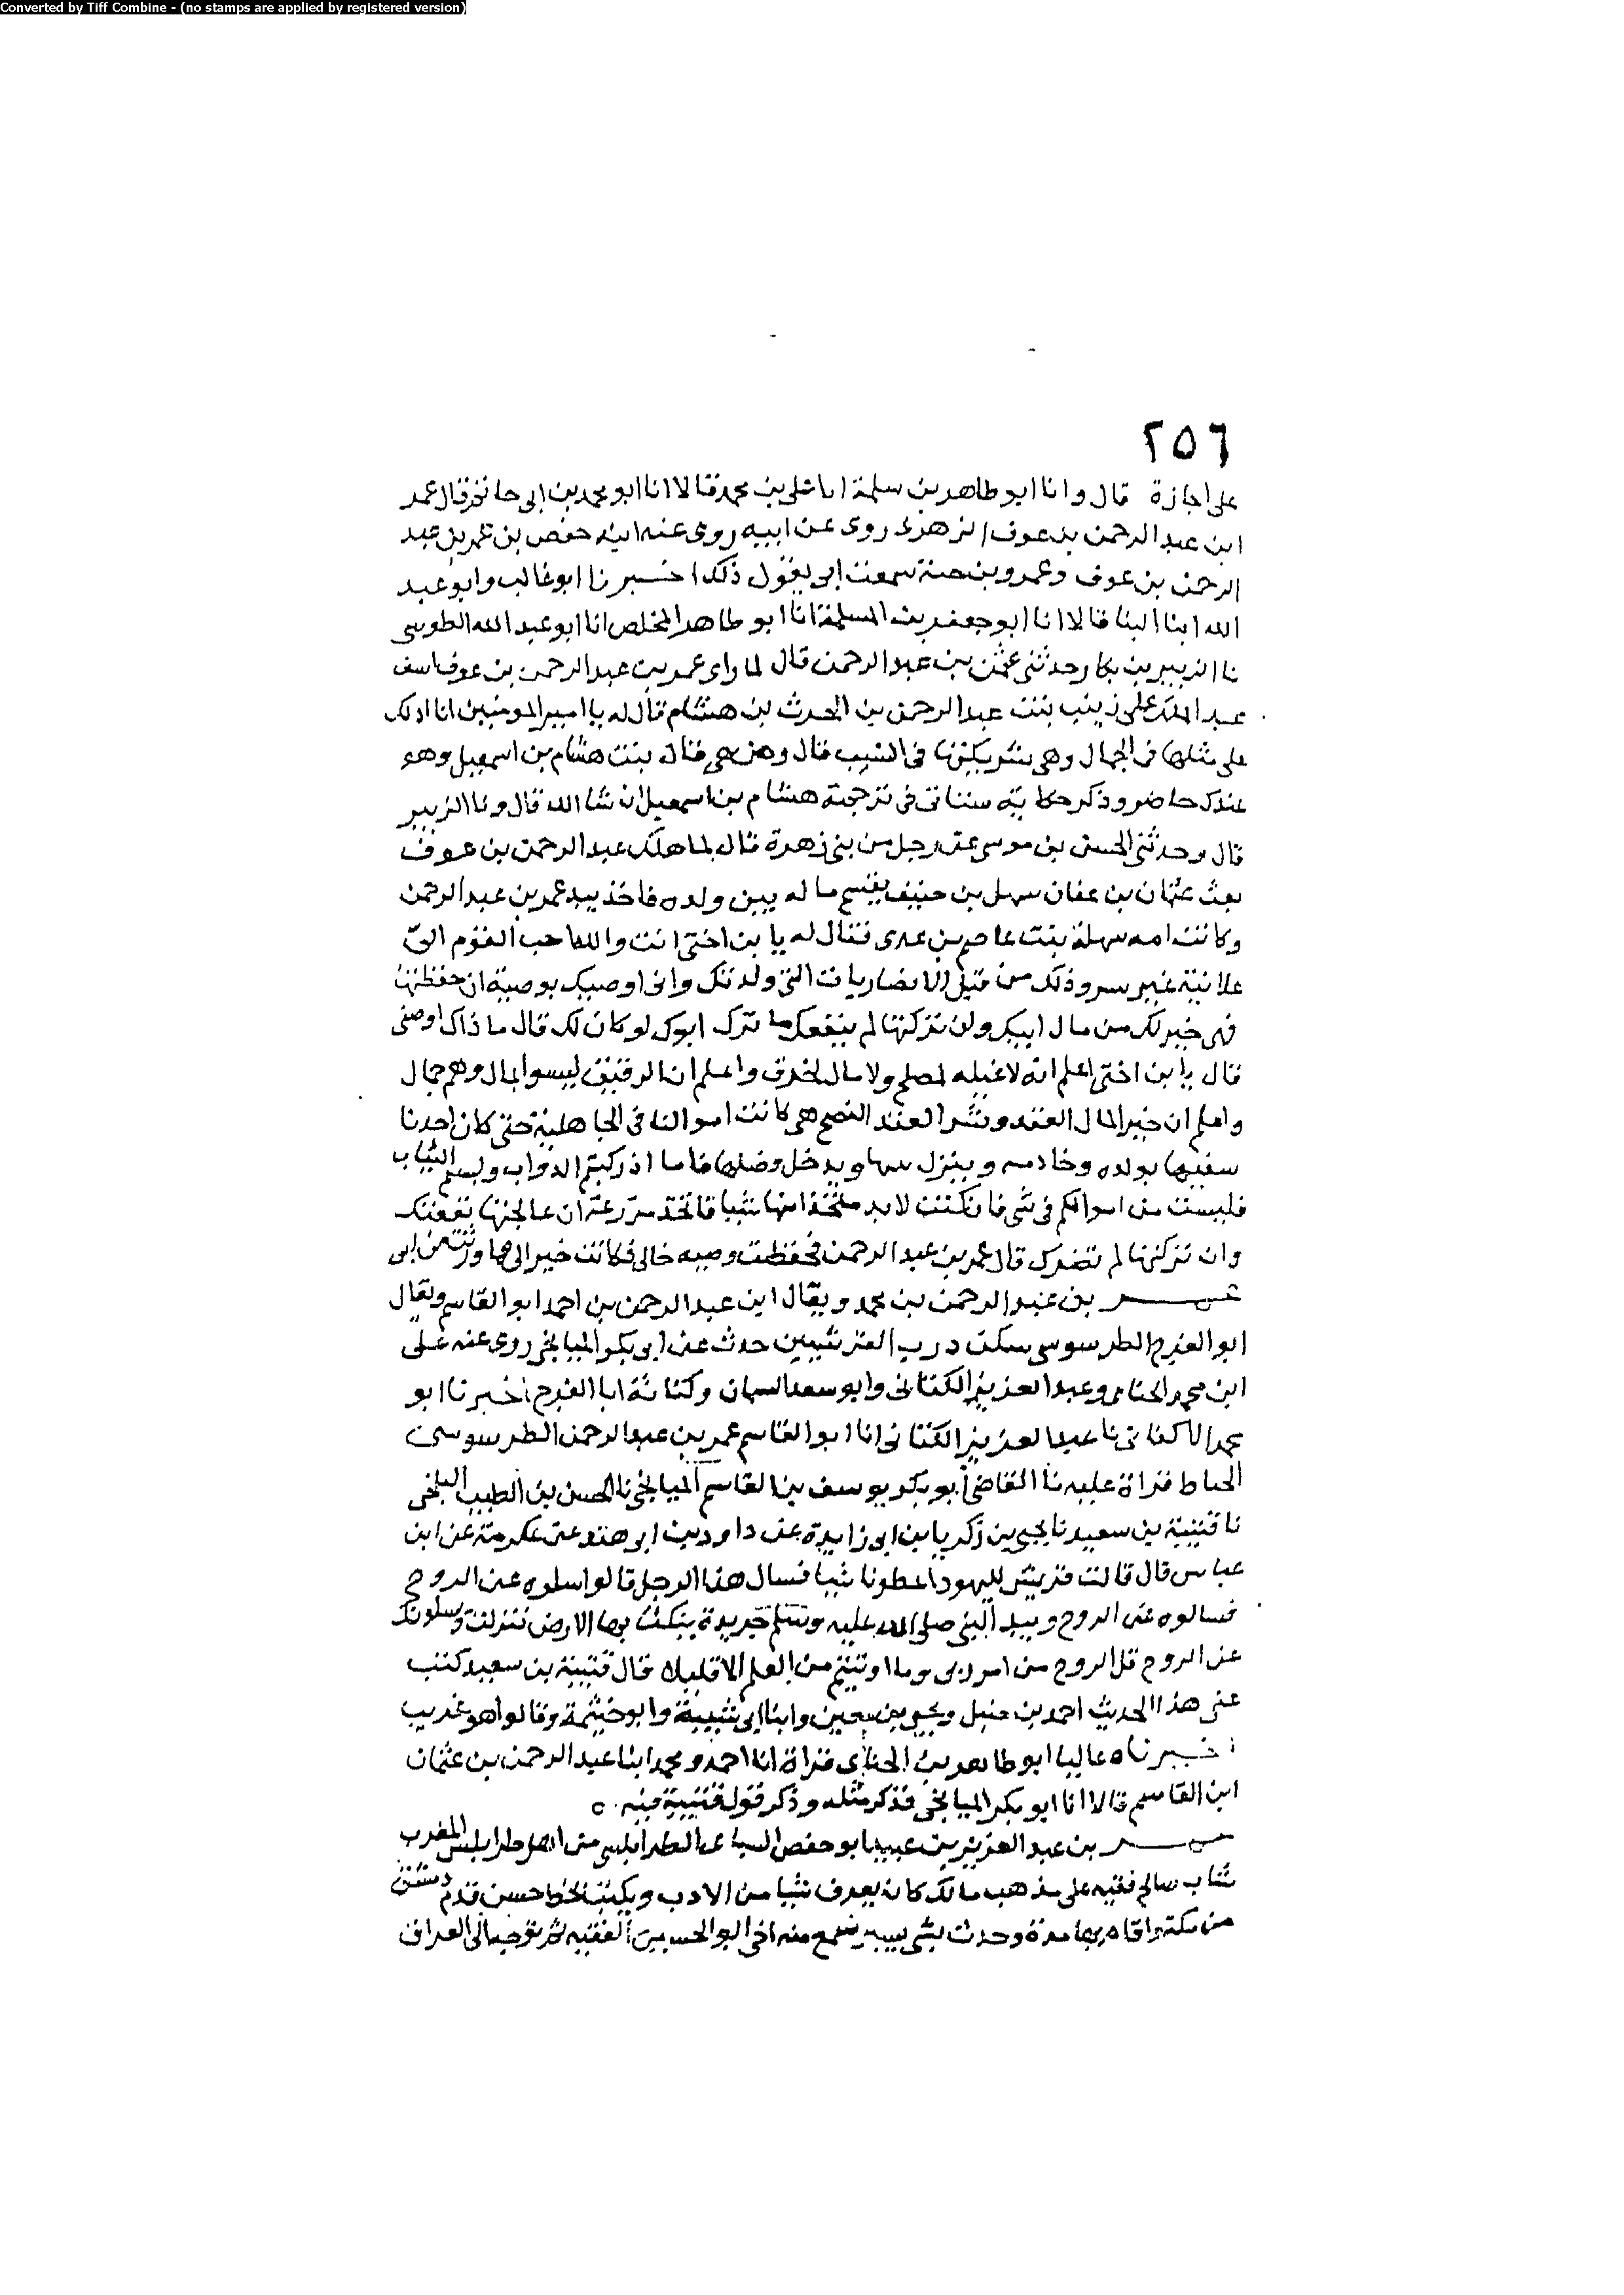 Converted by Tiff Combine - (no stamps are applied by registered version)
٢٥٦
على اجازة قال وانا ابو طاهر بن سلمة انا على بن محمد قالا انا ابو محمد بن ابى حاتم قال عمر
ابن عبد الرحمن بن عوف الزهرى روى عن ابيه روى عنه ابنه حفص بن عمر بن عبد
الرحمن بن عوف وعمرو بن حية سمعت ابى يقول ذلك اخبرنا ابو غالب وابو عبد
الله ابنا البنا قالا انا ابو جعفر بن المسلمة انا ابو طاهر المخلص انا ابو عبد الله الطوسى
نا الزبير بن بكار وحدثنى عثمن بن عبد الرحمن قال لما راى عمر بن عبد الرحمن بن عوف اسف
عبد الملك على زينب بنت عبد الرحمن بن الحرث بن هشام قال له يا امير المومنين انا ادلك
على مثلها فى الجمال وهى شريكتها فى النسب قال ومن هى قال بنت هشام بن اسمعيل وهو
عندك حاضر وذكر حكاية ستاتى فى ترجمة هشام بن اسمعيل ان شا الله قال ونا الزبير
قال وحدثنى الحسن بن موسى عن رجل من بنى زهرة قال لما هلك عبد الرحمن بن عوف
بعث عثمان بن عفان سهل بن حنيف يقسم ماله بين ولده فاخذ بيد عمر بن عبد الرحمن
وكانت امه سهلة بنت عاصم بن عدى فقال له يا بن اختى انت والله احب القوم الىّ
علانية غير سر وذلك من قبل الانصاريات التى ولدتك وانى اوصيك بوصية ان حفظتها
فهى خير لك من مال ابيك ولن تركتها لم ينفعك ما ترك ابوك لو كان لك قال ما ذاك اوصنى
قال يا بن اختى اعلم انه لا عيلة لمصلح ولا مال لخرق واعلم ان الرقيق ليسوا بمال وهم جمال
واعلم ان خير المال العقد وشر العقد النضح هى كانت اموالنا فى الجاهلية حتى كان احدنا
سقيها بولده وخادمه وينزل بها ويدخل فضلها فاما اذ ركبتم الدواب ولبستم الثياب
فليست من اموالكم فى شى فان كنت لابد متخذا منها شيا فاتخذ مزرعة ان عالجتها نفعتك
وان تركتها لم تضرك قال عمر بن عبد الرحمن فحفظت وصية خالى فكانت خيرا لى مما ورثت من ابى
عمر بن عبد الرحمن بن محمد ويقال ابن عبد الرحمن بن احمد ابو القاسم ويقال
ابو الفرج الطرسوسى سكن درب القرشيين حدث عن ابى بكر الميانجى روى عنه على
ابن محمد الحناى وعبد العزيز الكتانى وابو سعد السمان وكناه ابا الفرج اخبرنا ابو
محمد الاكفانى نا عبد العزيز الكتانى انا ابو القاسم عمر بن عبد الرحمن الطرسوسى
الخياط قراة عليه نا القاضى ابو بكر يوسف بن القاسم الميانجى نا الحسن بن الطيب البلخى
نا قتيبة بن سعيد نا يحيى بن زكريا بن ابى زايدة عن داود بن ابى هند عن عكرمة عن ابن
عباس قال قالت قريش لليهود اعطونا شيا نسال هذا الرجل قالوا سلوه عن الروح
فسالوه عن الروح وبيد النبى صلى الله عليه وسلم جريدة ينكث بها الارض فنزلت ويسلونك
عن الروح قل الروح من امر ربى وما اوتيتم من العلم الا قليلا قال قتيبة بن سعيد كتب
عنى هذا الحديث احمد بن حنبل ويحيى بن معين وابنا ابى شيبة وابو خيثمة وقالوا هو غريب
اخبرناه عاليا ابو طاهر بن الحناى قراة انا احمد ومحمد ابنا عبد الرحمن بن عثمان
ابن القاسم قالا انا ابو بكر الميانجى فذكر مثله وذكر قول قتيبة فيه ٥
عمر بن عبد العزيز بن عبيد ابو حفص السباعى الطرابلسى من اهل طرابلس المغرب
شاب صالح فقيه على مذهب مالك كان يعرف شيا من الادب ويكتب بخط حسن قدم دمشق
من مكة واقام بها مدة وحدث بشى يسير سمع منه اخى ابو الحسين الفقيه ثم توجه الى العراق